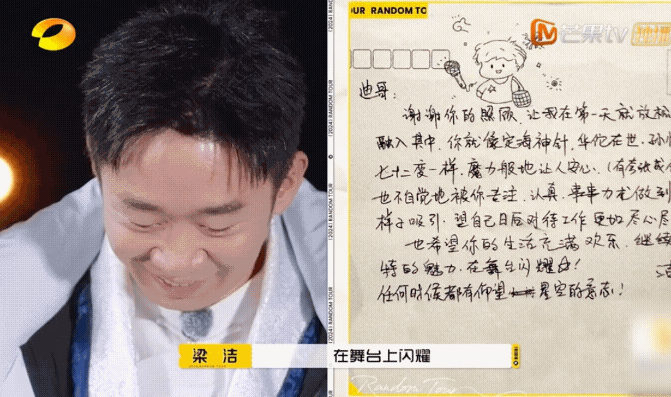 OUR RANDOM TO
芒果tv
迪哥:
谢谢你的照顾,让我在第一天就放松
融入其中,你就像定海神针,华佗在世,孙
七十二变一样,魔力般地让人安心.(有
也不自觉地被你专注、认真、事事力求做到
样子吸引,望自己日后对待工作更加尽心尽
也希望你的生活充满欢乐,继续
特的魅力,在舞台闪耀!
任何时候都有仰望星空的意志!
梁洁 在舞台上闪耀
[2024] RANDOM TOUR
Random Tour